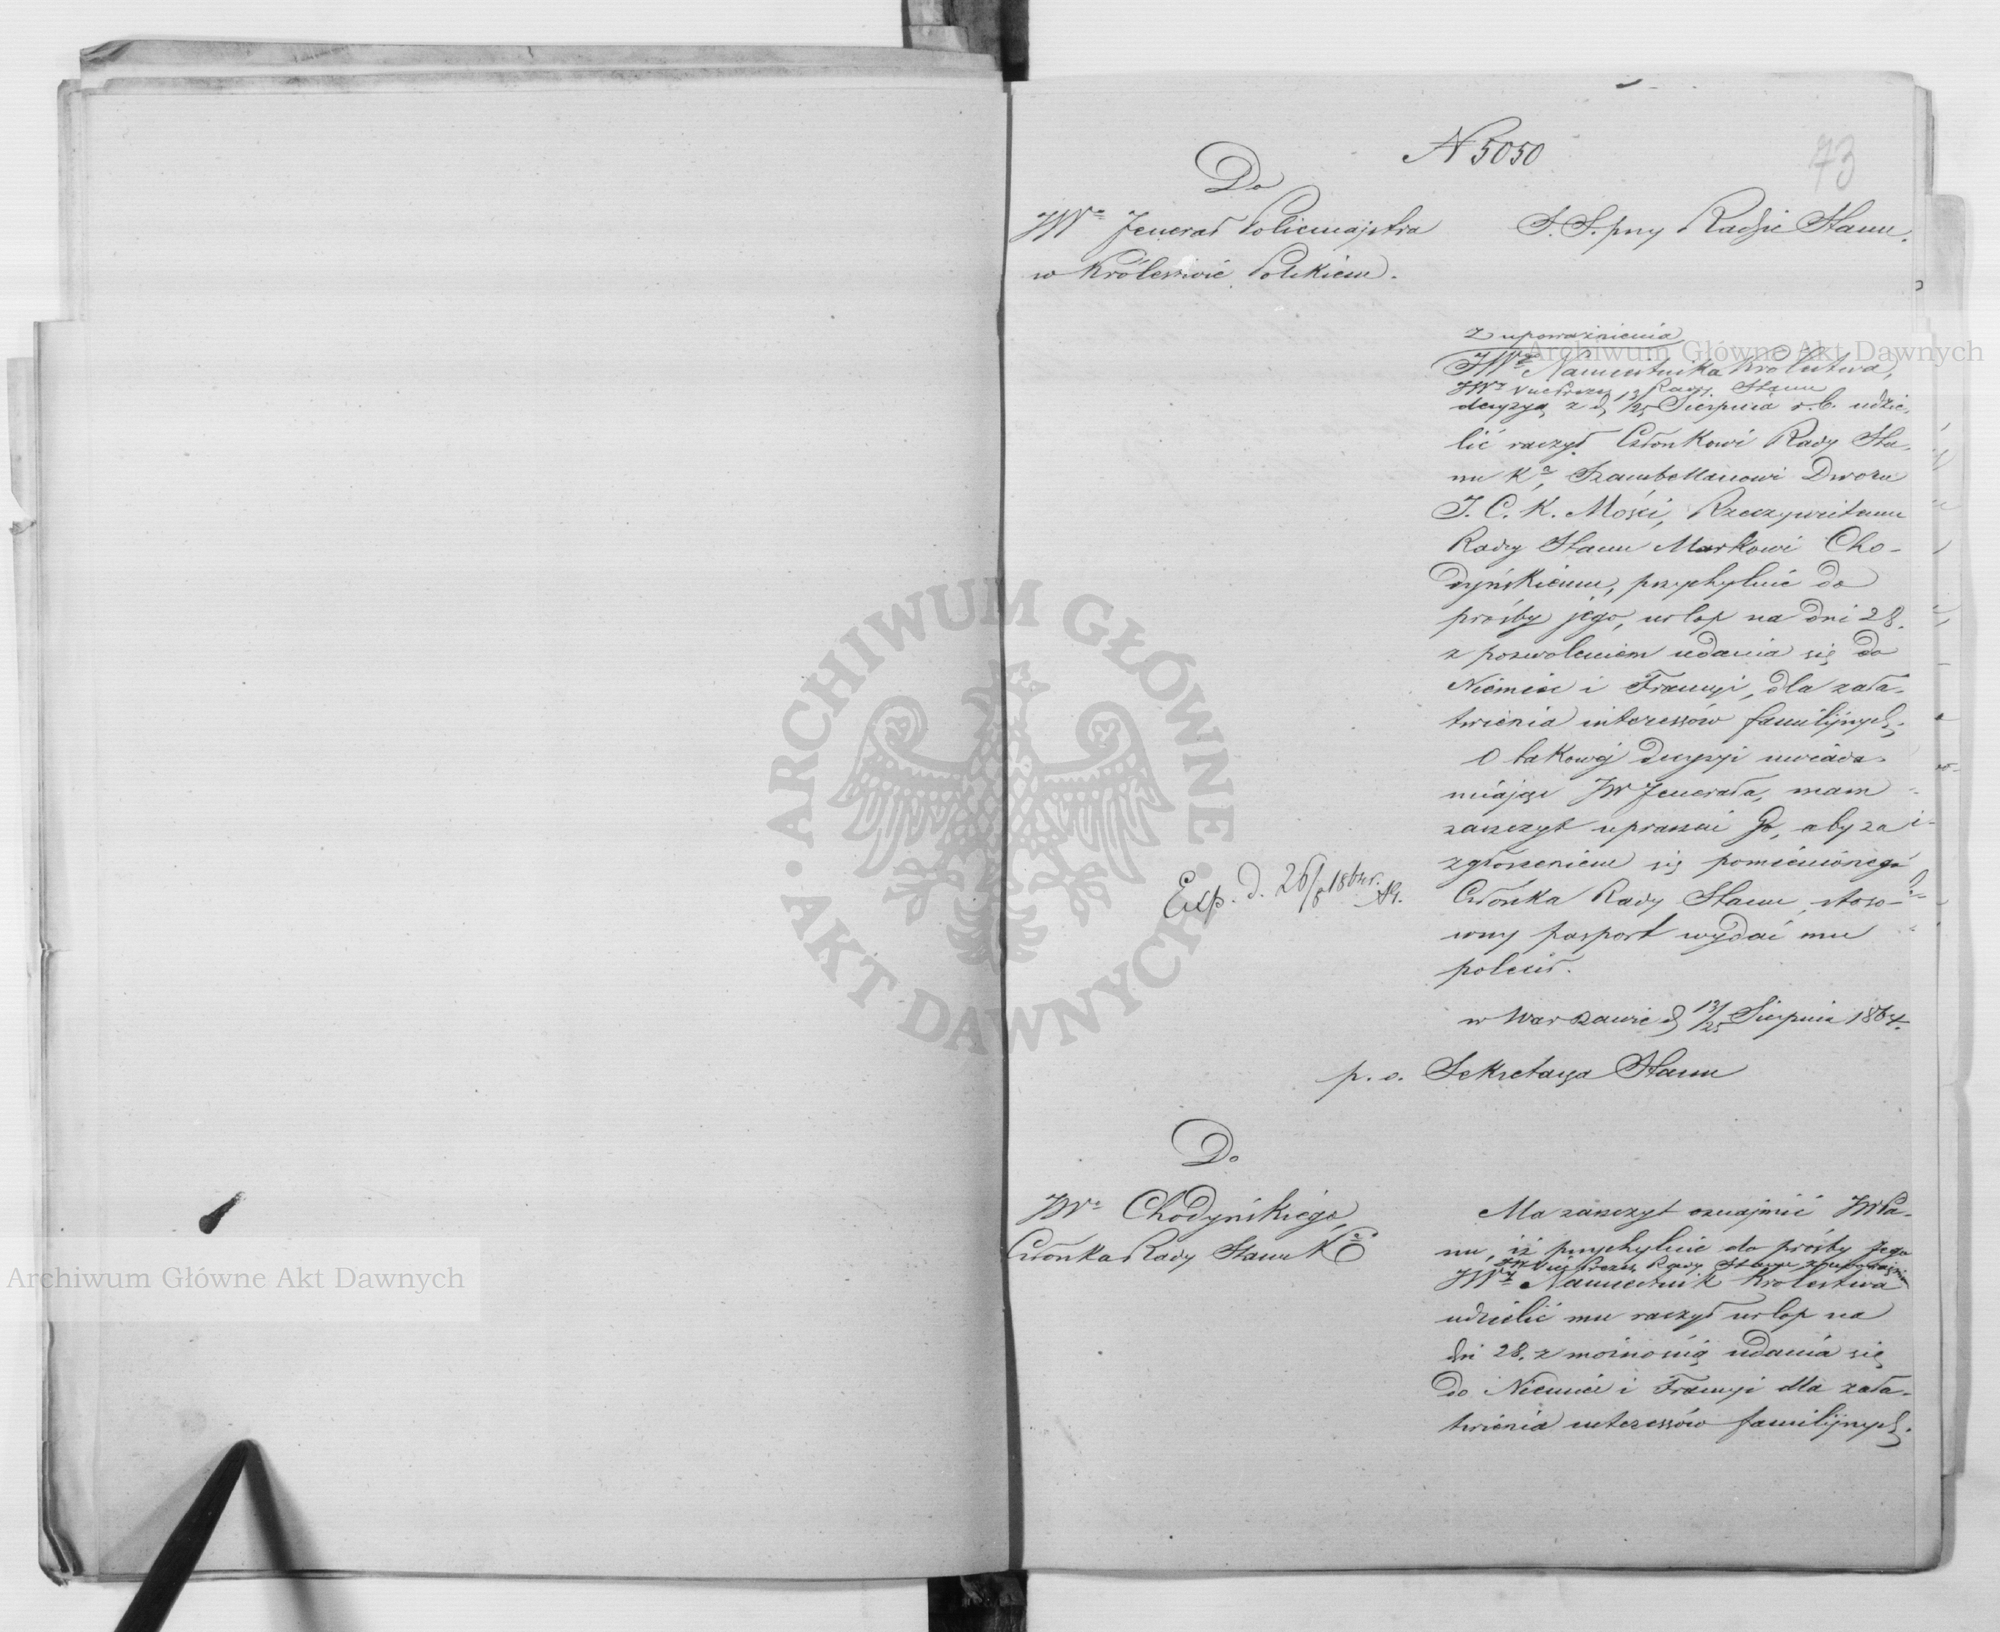 73
N 5050
Do
JWo Jenerał Policmajstra
w Królestwie Polskiem.
S. S. przy Radzie Stanu.
Z upoważnienia
JWo Namiestnika Królestwa,
JWy Vice Prezes Rady Stanu
decyzyą z d. 13/25 Sierpnia r. b. udzie-
lić raczył Członkowi Rady Sta-
nu Ka, Szambellanowi Dworu
J. C. K. Mości, Rzeczywistemu
Radcy Stanu Markowi Cho-
dyńskiemu, przychylnie do
prośby jego, urlop na dni 28.
z pozwoleniem udania się do
Niemiec i Francyi, dla zała-
twienia interessów familijnych.
O takowej decyzyi uwiada-
miając JW Jenerała, mam
zaszczyt upraszać Go, aby za
zgłoszeniem się pomienionego
Członka Rady Stanu, stoso-
wny pasport wydać mu
polecił.
Exp. d. 26/8 1864 r.
w Warszawie d. 13/25 Sierpnia 1864.
p. o. Sekretarza Stanu
Do
JWo Chodyńskiego,
Członka Rady Stanu K
Ma zaszczyt oznajmić JWPa-
nu, iż przychylnie do prośby Jego
JW Vice Prezes Rady Stanu z upoważnienia
JWy Namiestnik Królestwa
udzielić mu raczył urlop na
dni 28. z możnością udania się
do Niemiec i Francyi dla zała-
twienia interessów familijnych.
Archiwum Główne Akt Dawnych
Archiwum Główne Akt Dawnych
ARCHIWUM GŁÓWNE AKT DAWNYCH